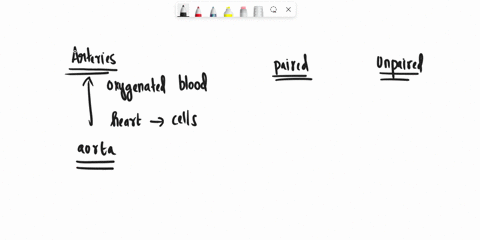 Arteries
oxygenated blood
heart → cells
aorta
paired
Unpaired